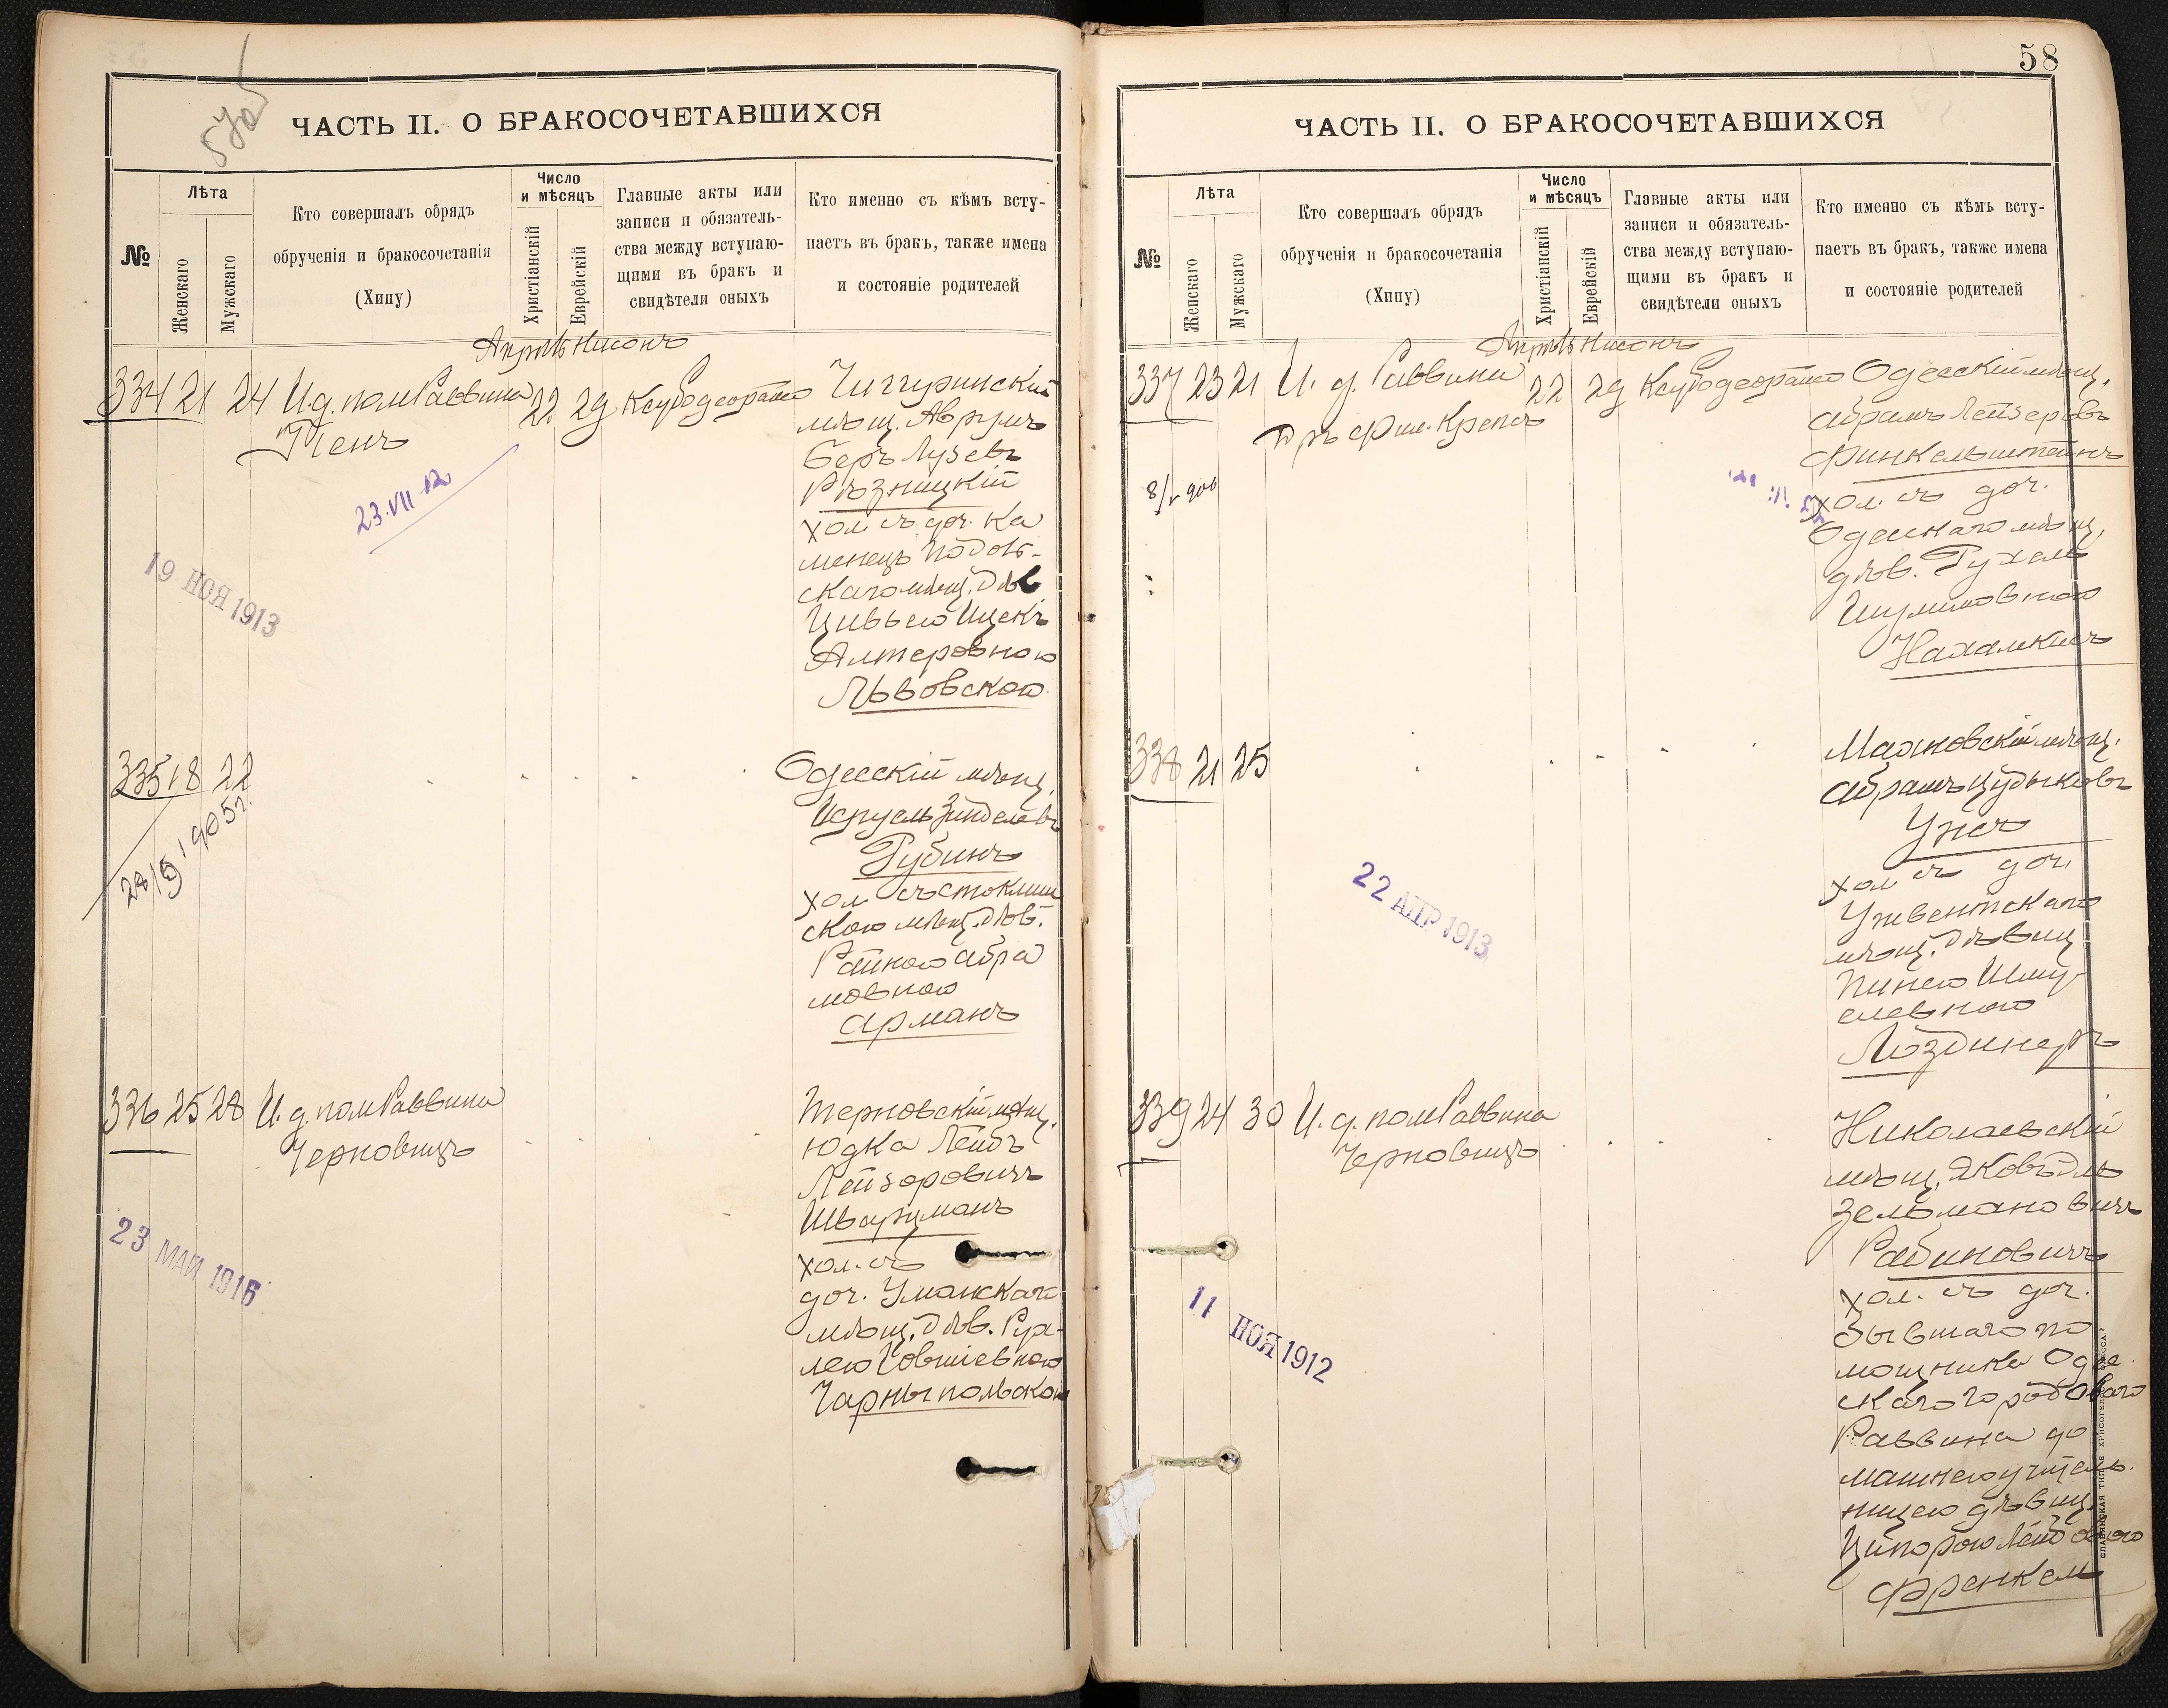 57об
ЧАСТЬ II. О БРАКОСОЧЕТАВШИХСЯ
№
Лѣта
Женскаго
Мужскаго
Кто совершалъ обрядъ
обрученія и бракосочетанія
(Хипу)
Число
и мѣсяцъ
Христіанскій
Еврейскій
Главные акты или
записи и обязатель-
ства между вступаю-
щими въ бракъ и
свидѣтели оныхъ
Кто именно съ кѣмъ всту-
паетъ въ бракъ, также имена
и состояніе родителей
Апрѣль Нисонъ
334 21 24 И.д. пом Раввина 22 29
Пенъ
Чигиринскій
мѣщ. Аврумъ
Беръ Лузевъ
Рѣзницкій
хол съ доч. Ка
менецъ Подоль-
скаго мѣщ. дѣв
Цивьею Ицекъ
Алтеровною
Львовскою
23.VII 12
19 НОЯ 1913
335 18 22
Одесскій мѣщ.
Исруель Зинделевъ
Рубинъ
хол съ
скою мѣщ. дѣв.
Рейзею Абра
мовною
Арманъ
28/5 1905 г.
336 25 28 И. д. пом Раввина
Черновицъ
Терновскій мѣщ.
Юдка Лейбъ
Лейзоровичъ
Шварцманъ
хол. съ
доч. Уманскаго
мѣщ. дѣв. Рух-
лею Іовшіевною
Чарныпольскою
23 МАЙ 1916
58
ЧАСТЬ II. О БРАКОСОЧЕТАВШИХСЯ
№
Лѣта
Женскаго
Мужскаго
Кто совершалъ обрядъ
обрученія и бракосочетанія
(Хипу)
Число
и мѣсяцъ
Христіанскій
Еврейскій
Главные акты или
записи и обязатель-
ства между вступаю-
щими въ бракъ и
свидѣтели оныхъ
Кто именно съ кѣмъ всту-
паетъ въ бракъ, также имена
и состояніе родителей
Апрѣль Нисонъ
337 23 21 И. д. Раввина 22 29
Д ръ Фил. Крепсъ
Одесскій мѣщ.
Абрамъ Лейзеровъ
Финкельштейнъ
хол. съ доч.
Одесскаго мѣщ.
дѣв. Рухель
Шулимовною
338 21 25
Маяковскій мѣщ.
Абрамъ Цудыковъ
хол съ доч.
Ужвентскаго
мѣщ. дѣвиц
Пинею Шму-
елевною
22 АПР 1913
339 24 30 И. д. пом Раввина
Черновицъ
Николаевскій
мѣщ. Яковъ
Зельмановичъ
Рабиновичъ
хол. съ доч.
бывшаго по
мощника Одес
скаго городоваго
Раввина до
машнею учитель
ницею дѣвиц.
Ципорою Лейбовою
Френкель
11 НОЯ 1912